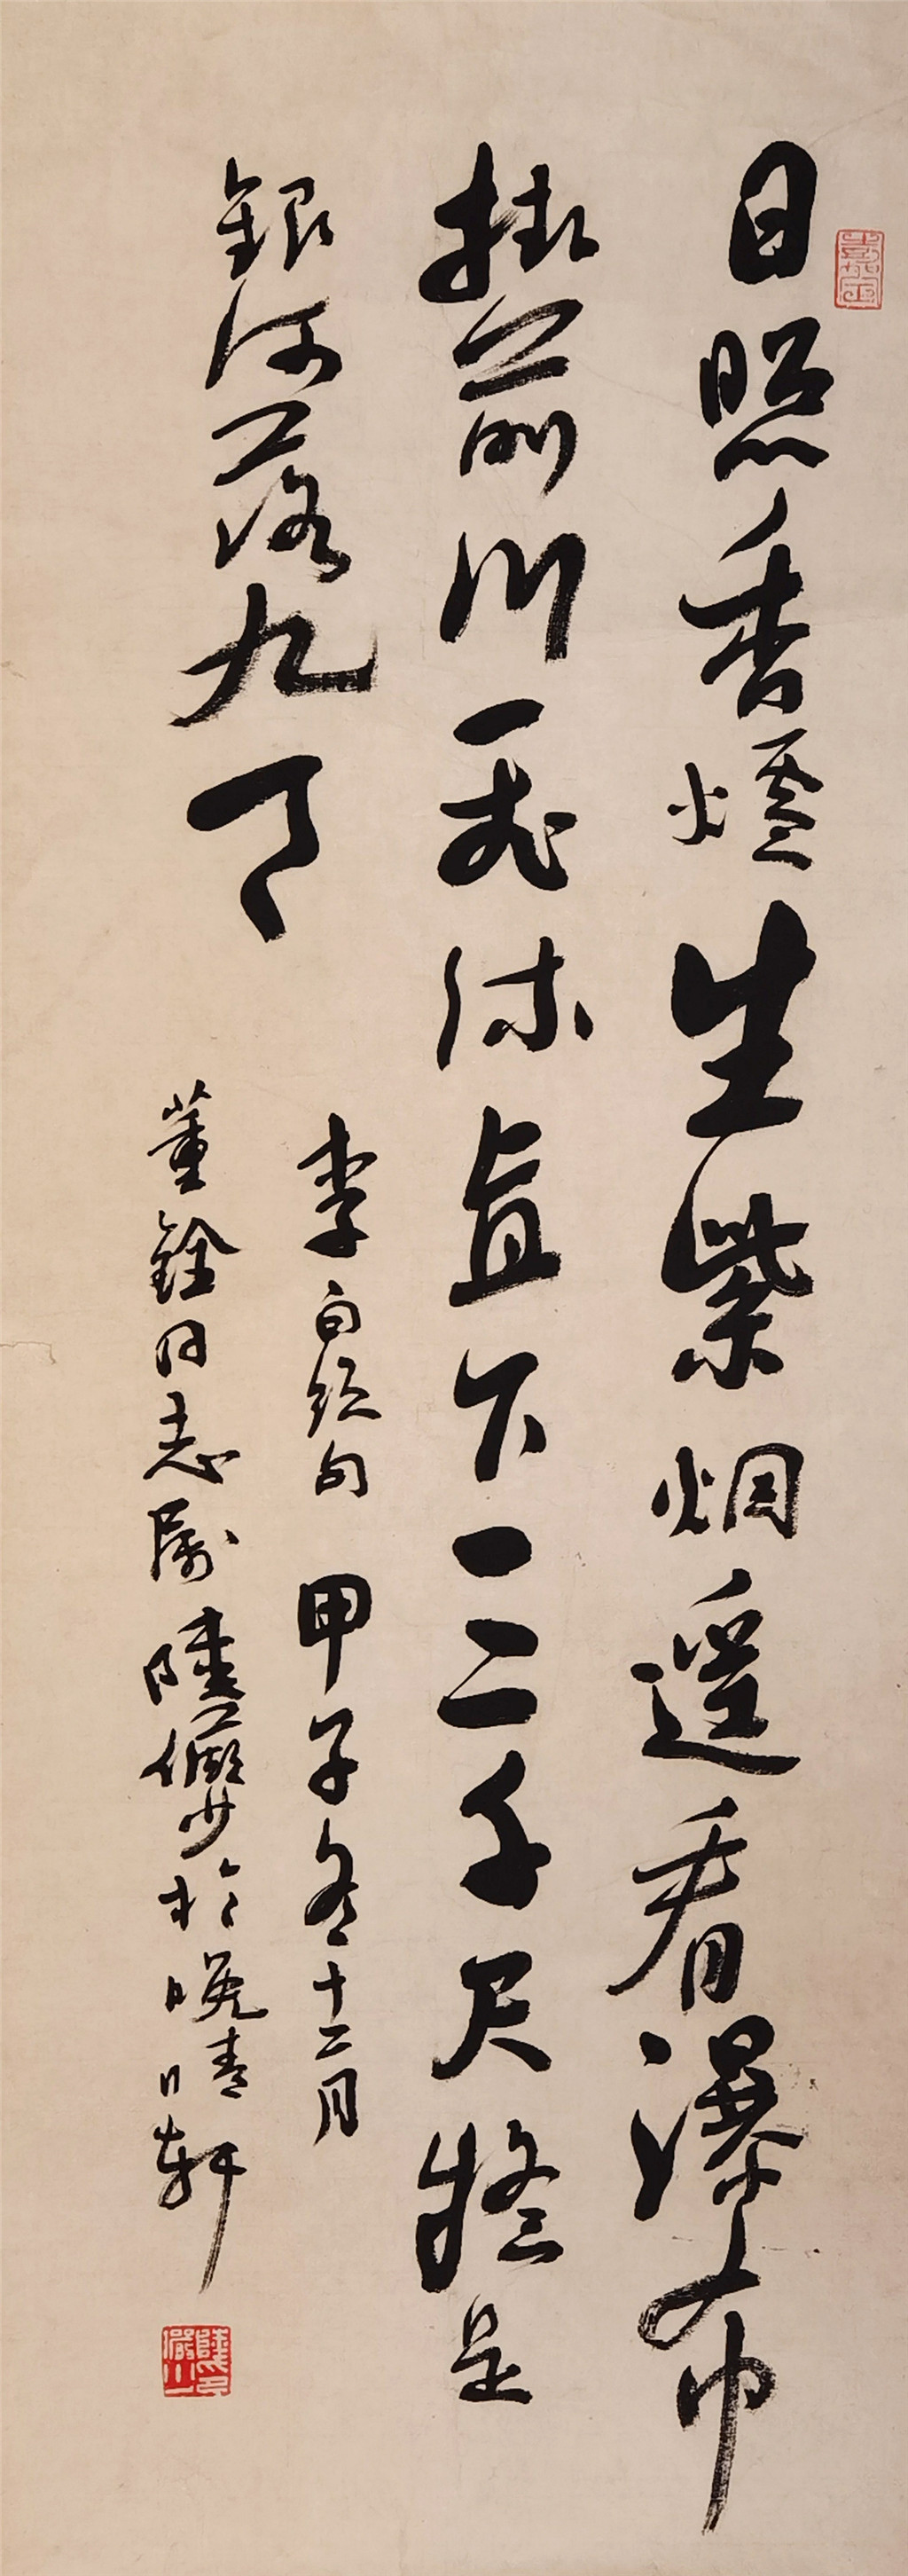 日照香爐生紫烟遥看瀑布
掛前川飛流直下三千尺疑是
銀河落九天
李白絕句 甲子冬十二月
董銓同志屬 陸儼少於晚晴軒